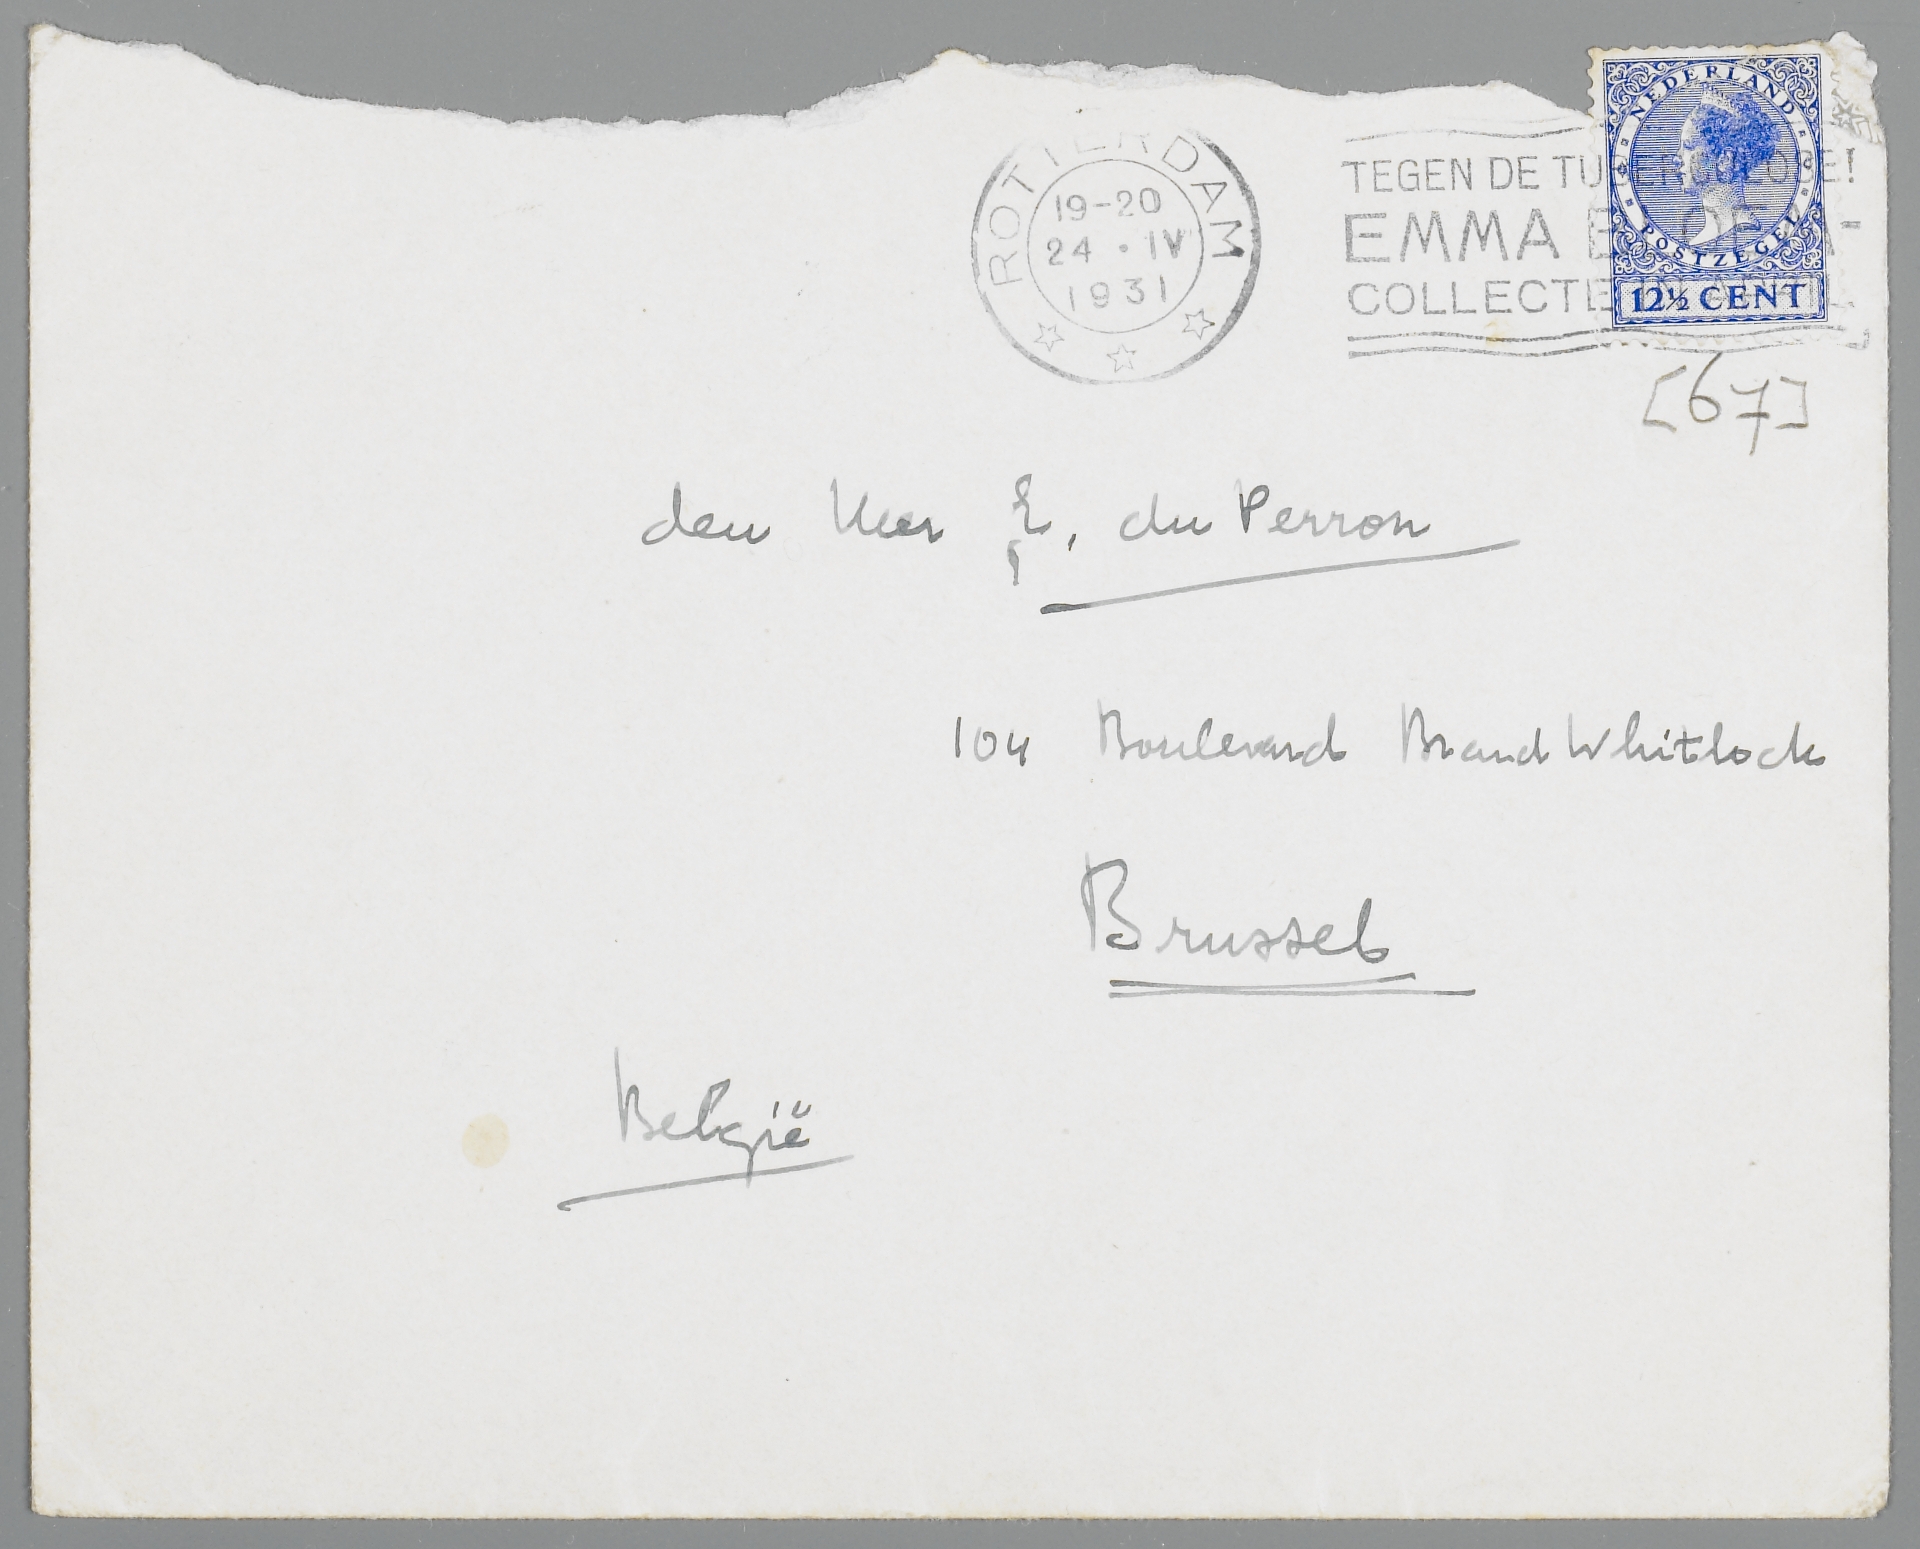 ROTTERDAM
19-20
24 · IV
1931
TEGEN DE TUBERCULOSE!
EMMA BLOEM-
COLLECTE
NEDERLAND
POSTZEGEL
12½ CENT
[67]
den Heer E. du Perron
104 Boulevard Brand Whitlock
Brussel
België